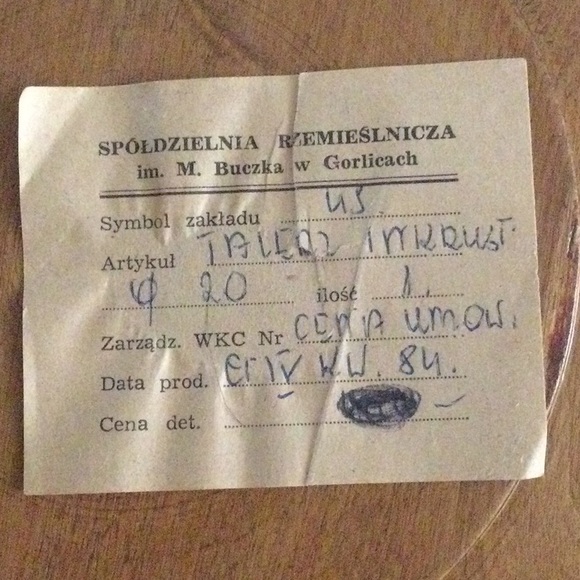 SPÓŁDZIELNIA RZEMIEŚLNICZA
im. M. Buczka w Gorlicach
Symbol zakładu 45
Artykuł TALERZ INKRUST.
φ 20 ilość 1.
Zarządz. WKC Nr CENA UMOW.
Data prod. IV KW. 84.
Cena det. —